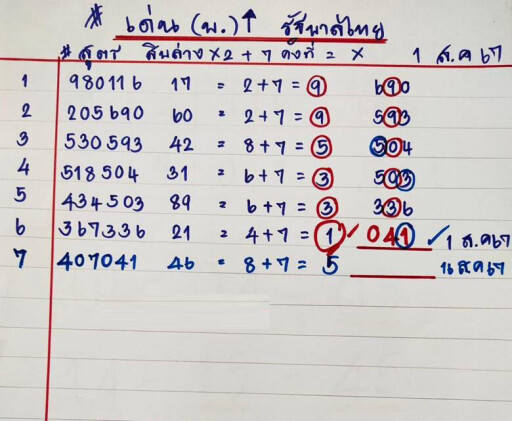 # เด่น (พ.) ↑ รัฐบาลไทย
# สูตร สิบล่าง x 2 + 7 คงที่ = x 1 ส.ค 67
1 980116 17 = 2+7 = 9 690
2 205690 60 = 2+7 = 9 593
3 530593 42 = 8+7 = 5 504
4 518504 31 = 6+7 = 3 503
5 434503 89 = 6+7 = 3 336
6 367336 21 = 4+7 = 1 ✓ 041 ✓ 1 ส.ค 67
7 407041 46 = 8+7 = 5 16 ส.ค 67